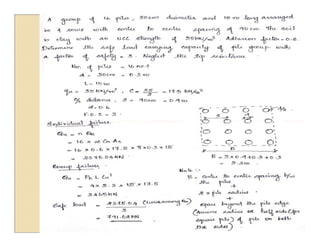 A group of 16 piles, 50cm diameter and 15m long arranged
in 4 rows with centre to centre spacing of 90cm. The soil
is clay with an UCC strength of 35kN/m². Adhesion factor = 0.6
Determine the safe load carrying capacity of pile group with
a factor of safety = 3. Neglect the tip resistance
No. of piles = 16 nos
d = 50cm = 0.5m
L = 15m
qu = 35 kN/m², C = = 17.5 kN/m²
c/c distance, S = 90cm = 0.9m
α = 0.6
F.O.S = 3
Individual failure
= n
= 16 × α Cu As
= 16 × 0.6 × 17.5 × π × 0.5 × 15
Group failure
= Pb L Cu
= 4 × 3.2 × 15 × 17.5
Safe load =
3
B
B = 3 × 0.9 + 0.5
= 3.2m
Note :-
B = centre to centre spacing b/w
the piles
+
2 × pile radius
+
space beyond the pile edge
(Assume radius or half side (for
square pile) of pile on both
the sides)